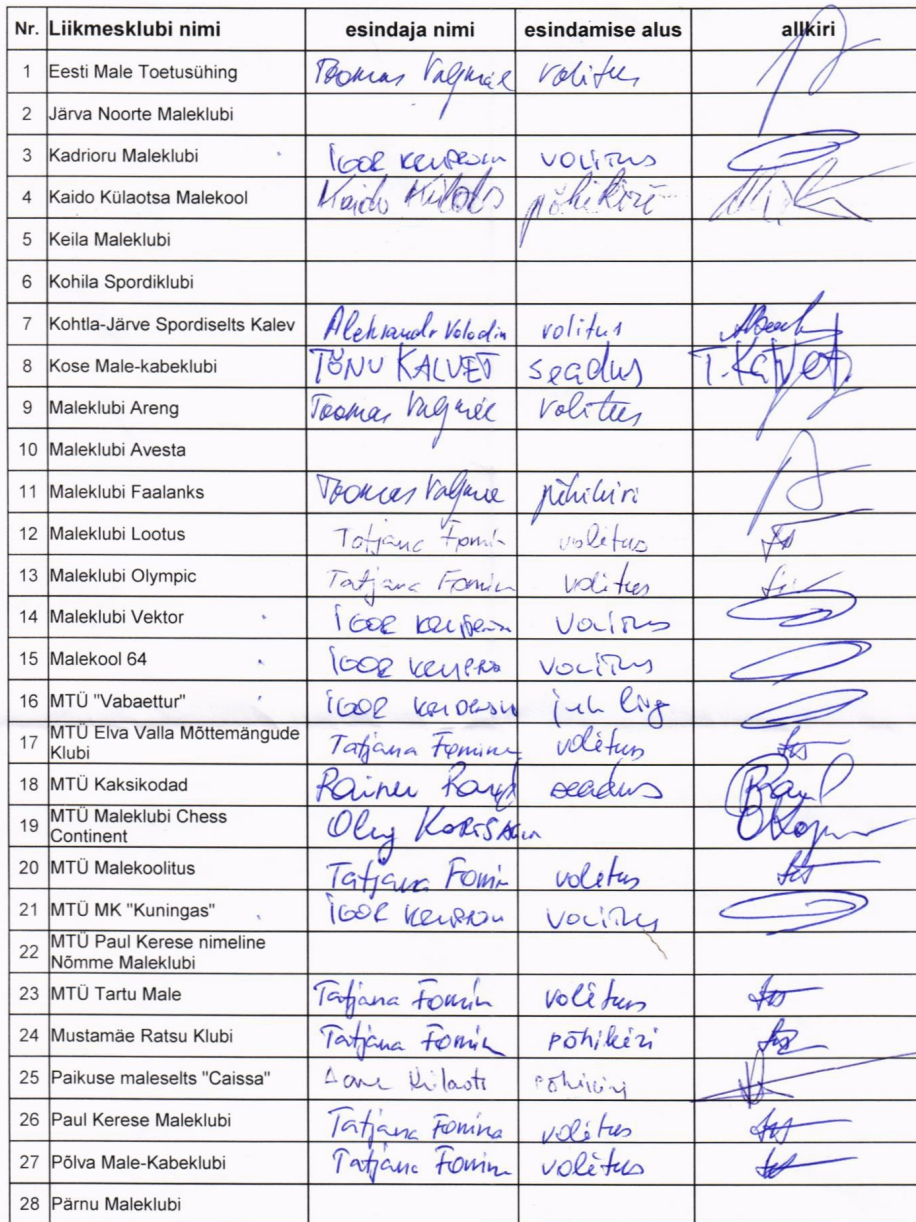 Nr. Liikmesklubi nimi esindaja nimi esindamise alus allkiri
1 Eesti Male Toetusühing Toomas Valgmäe volitus
2 Järva Noorte Maleklubi
3 Kadrioru Maleklubi IGOR volitus
4 Kaido Külaotsa Malekool Kaido Külaots põhikiri
5 Keila Maleklubi
6 Kohila Spordiklubi
7 Kohtla-Järve Spordiselts Kalev Aleksandr Volodin volitus
8 Kose Male-kabeklubi TÕNU KALVET seadus T. Kalvet
9 Maleklubi Areng Toomas Valgmäe volitus
10 Maleklubi Avesta
11 Maleklubi Faalanks Toomas Valgmäe põhikiri
12 Maleklubi Lootus Tatjana Fomin volitus
13 Maleklubi Olympic Tatjana Fomin volitus
14 Maleklubi Vektor IGOR volitus
15 Malekool 64 IGOR volitus
16 MTÜ "Vabaettur" IGOR juh liige
17 MTÜ Elva Valla Mõttemängude
Klubi Tatjana Fomina volitus
18 MTÜ Kaksikodad Rainer Raud seadus
19 MTÜ Maleklubi Chess
Continent Oleg
20 MTÜ Malekoolitus Tatjana Fomin volitus
21 MTÜ MK "Kuningas" IGOR volitus
22 MTÜ Paul Kerese nimeline
Nõmme Maleklubi
23 MTÜ Tartu Male Tatjana Fomin volitus
24 Mustamäe Ratsu Klubi Tatjana Fomin põhikiri
25 Paikuse maleselts "Caissa" põhikiri
26 Paul Kerese Maleklubi Tatjana Fomina volitus
27 Põlva Male-Kabeklubi Tatjana Fomin volitus
28 Pärnu Maleklubi